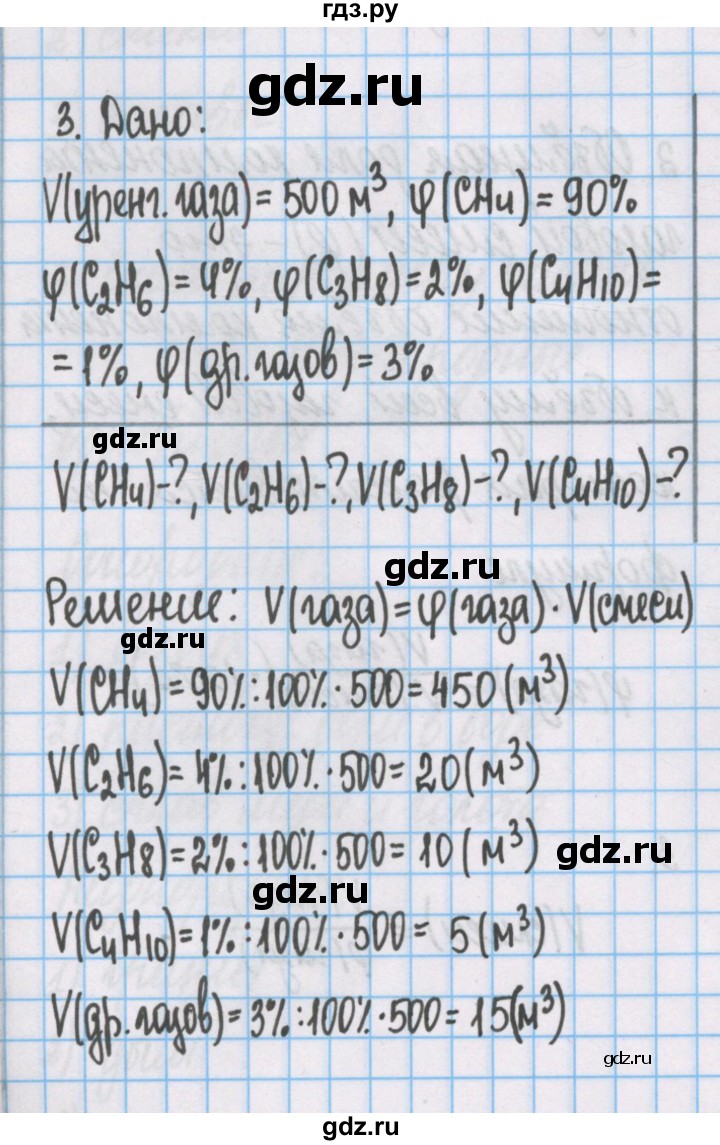 гдз.ру
gdz.ru
3. Дано:
V(уренг. газа) = 500 м³, φ(CH4) = 90%
φ(C₂H₆) = 4%, φ(C₃H8) = 2%, φ(C4H10) =
= 1%, φ(др. газов) = 3%
gdz.ru
V(CH4)-?, V(C₂H₆)-?, V(C₃H8)-?, V(C4H10)-?
gdz.ru
Решение: V(газа) = φ(газа) · V(смеси)
gdz.ru
V(CH4) = 90% : 100% · 500 = 450 (м³)
V(C₂H₆) = 4% : 100% · 500 = 20 (м³)
V(C₃H8) = 2% : 100% · 500 = 10 (м³)
gdz.ru
gdz.ru
V(C4H10) = 1% : 100% · 500 = 5 (м³)
V(др. газов) = 3% : 100% · 500 = 15 (м³)
gdz.ru
gdz.ru